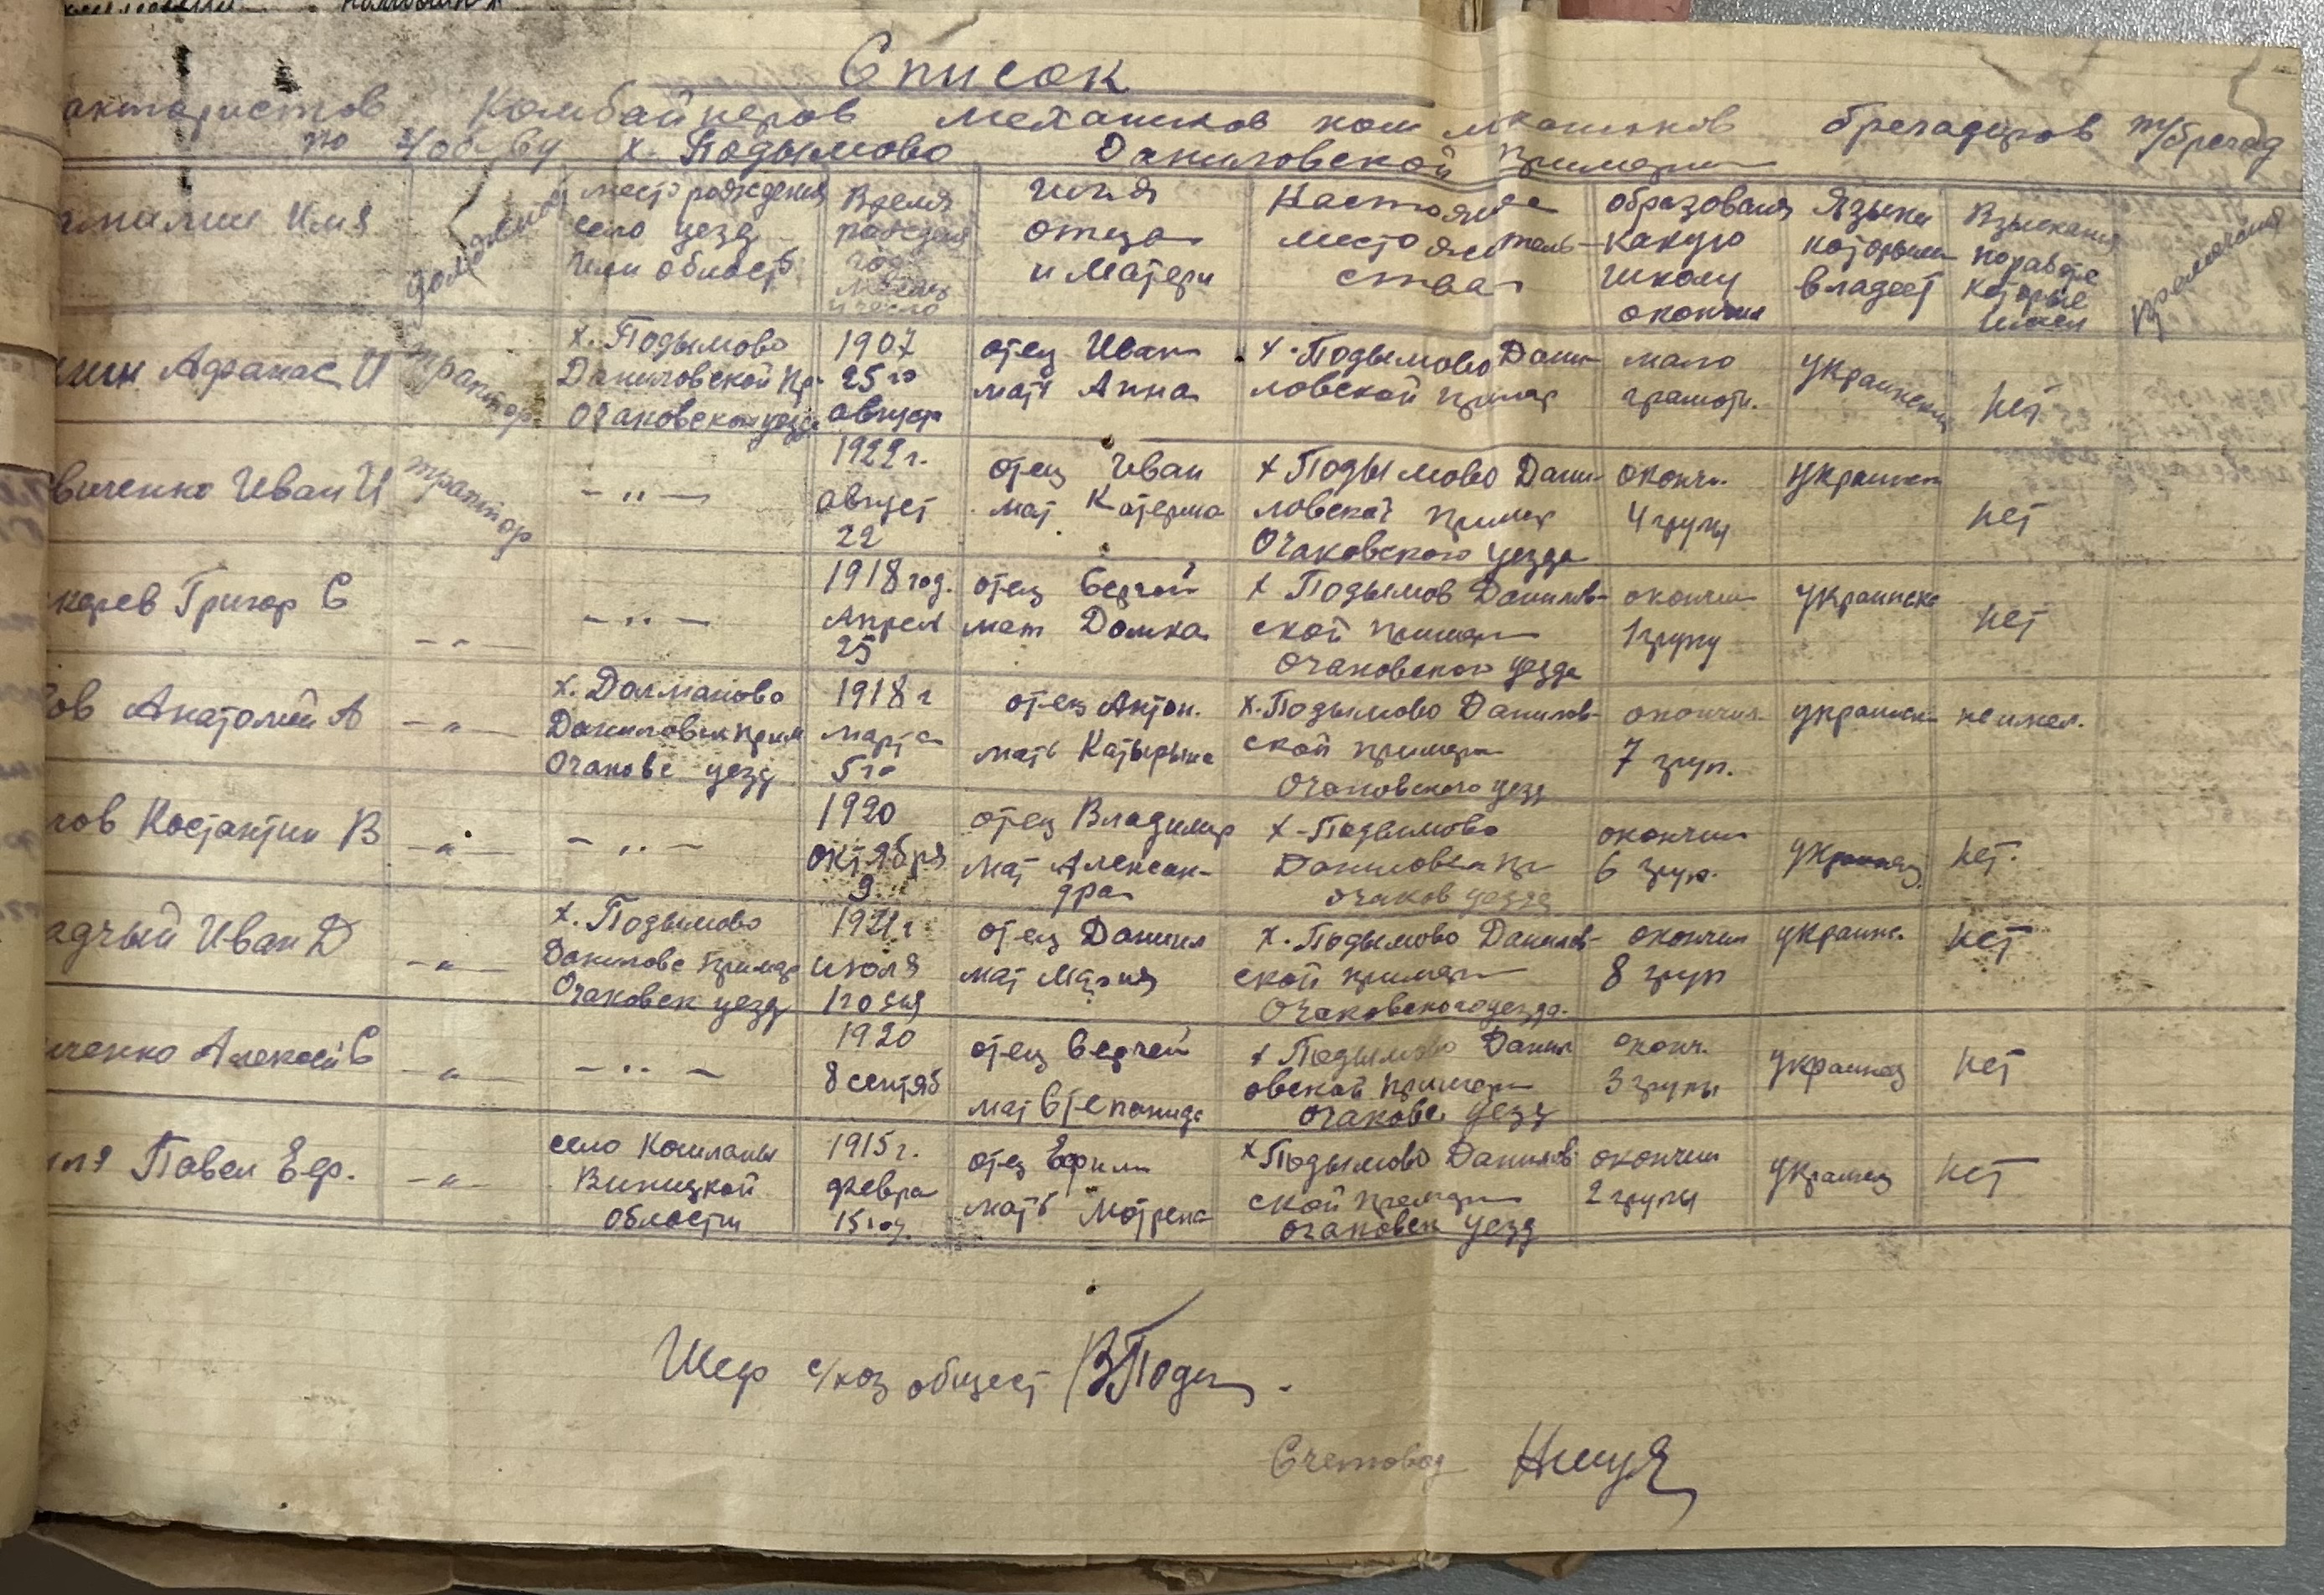 Список
актористов Комбайнеров механиков пом механиков бригадиров т/бригад
по с/об-ву х. Подымово Даниловской примари
амилии Имя
должность
место рождения
село уезд
или область
Время
рождения
год
месяц
и число
имя
отца
и матери
Настояще
место житель-
ства
образования
какую
школу
окончил
Языки
которыми
владеет
Взыскания
по работе
которые
имел
Примечание
Афанас И
трактор
х. Подымово
Даниловской пр.
Очаковского уезда
1907
25 го
августа
отец Иван
мать Анна
х. Подымово Дани-
ловской примар
мало
грамотн.
украински
нет.
виченко Иван И
трактор
- " -
1922 г.
август
22
отец Иван
мат Катерина
х Подымово Дани-
ловской примар
Очаковского уезда
оконч.
4 групы
украинск
нет
карев Григор С
- " -
- " -
1918 год.
Апреля
25
отец Сергей
мат Домка
х Подымов Данилов-
ской примари
Очаковского уезда
окончил
1 групу
украинска
нет
ов Анатолий А
- " -
х. Далманово
Даниловск прим
Очаковс уезд
1918 г
марта
5 го
отец Антон.
мать Катырына
х. Подымово Данилов-
ской примари
Очаковского уезд
окончил.
7 груп.
украинск
не имел.
ов Костантин В
- " -
- " -
1920
октября
9
отец Владимир
мат Алексан-
дра
х-Подымово
Даниловск пр
очаков уезда
окончил
6 груп.
украинец.
нет.
адчый Иван Д
- " -
х. Подымово
Даниловс примар
Очаковск уезд
1921 г
июля
1 го дня
отец Данил
мат Мария
х. Подымово Данилов-
ской примари
Очаковского уезда.
окончил
8 груп
украинс.
нет
ченко Алексей С
- " -
- " -
1920
8 сентяб
отец Сергей
мат Степанида
х Подымово Данил
овской примари
очаковс уезд
оконч.
3 групы
украинец
нет
Павел Еф.
- " -
село Кошланы
Виницкой
области
1915 г.
февра
15 год.
отец Ефим
мать Мотрена
х Подымово Данилов-
ской примари
очаковск уезд
окончил
2 групы
украинец
нет
Шеф с/хоз общест
Счетовод